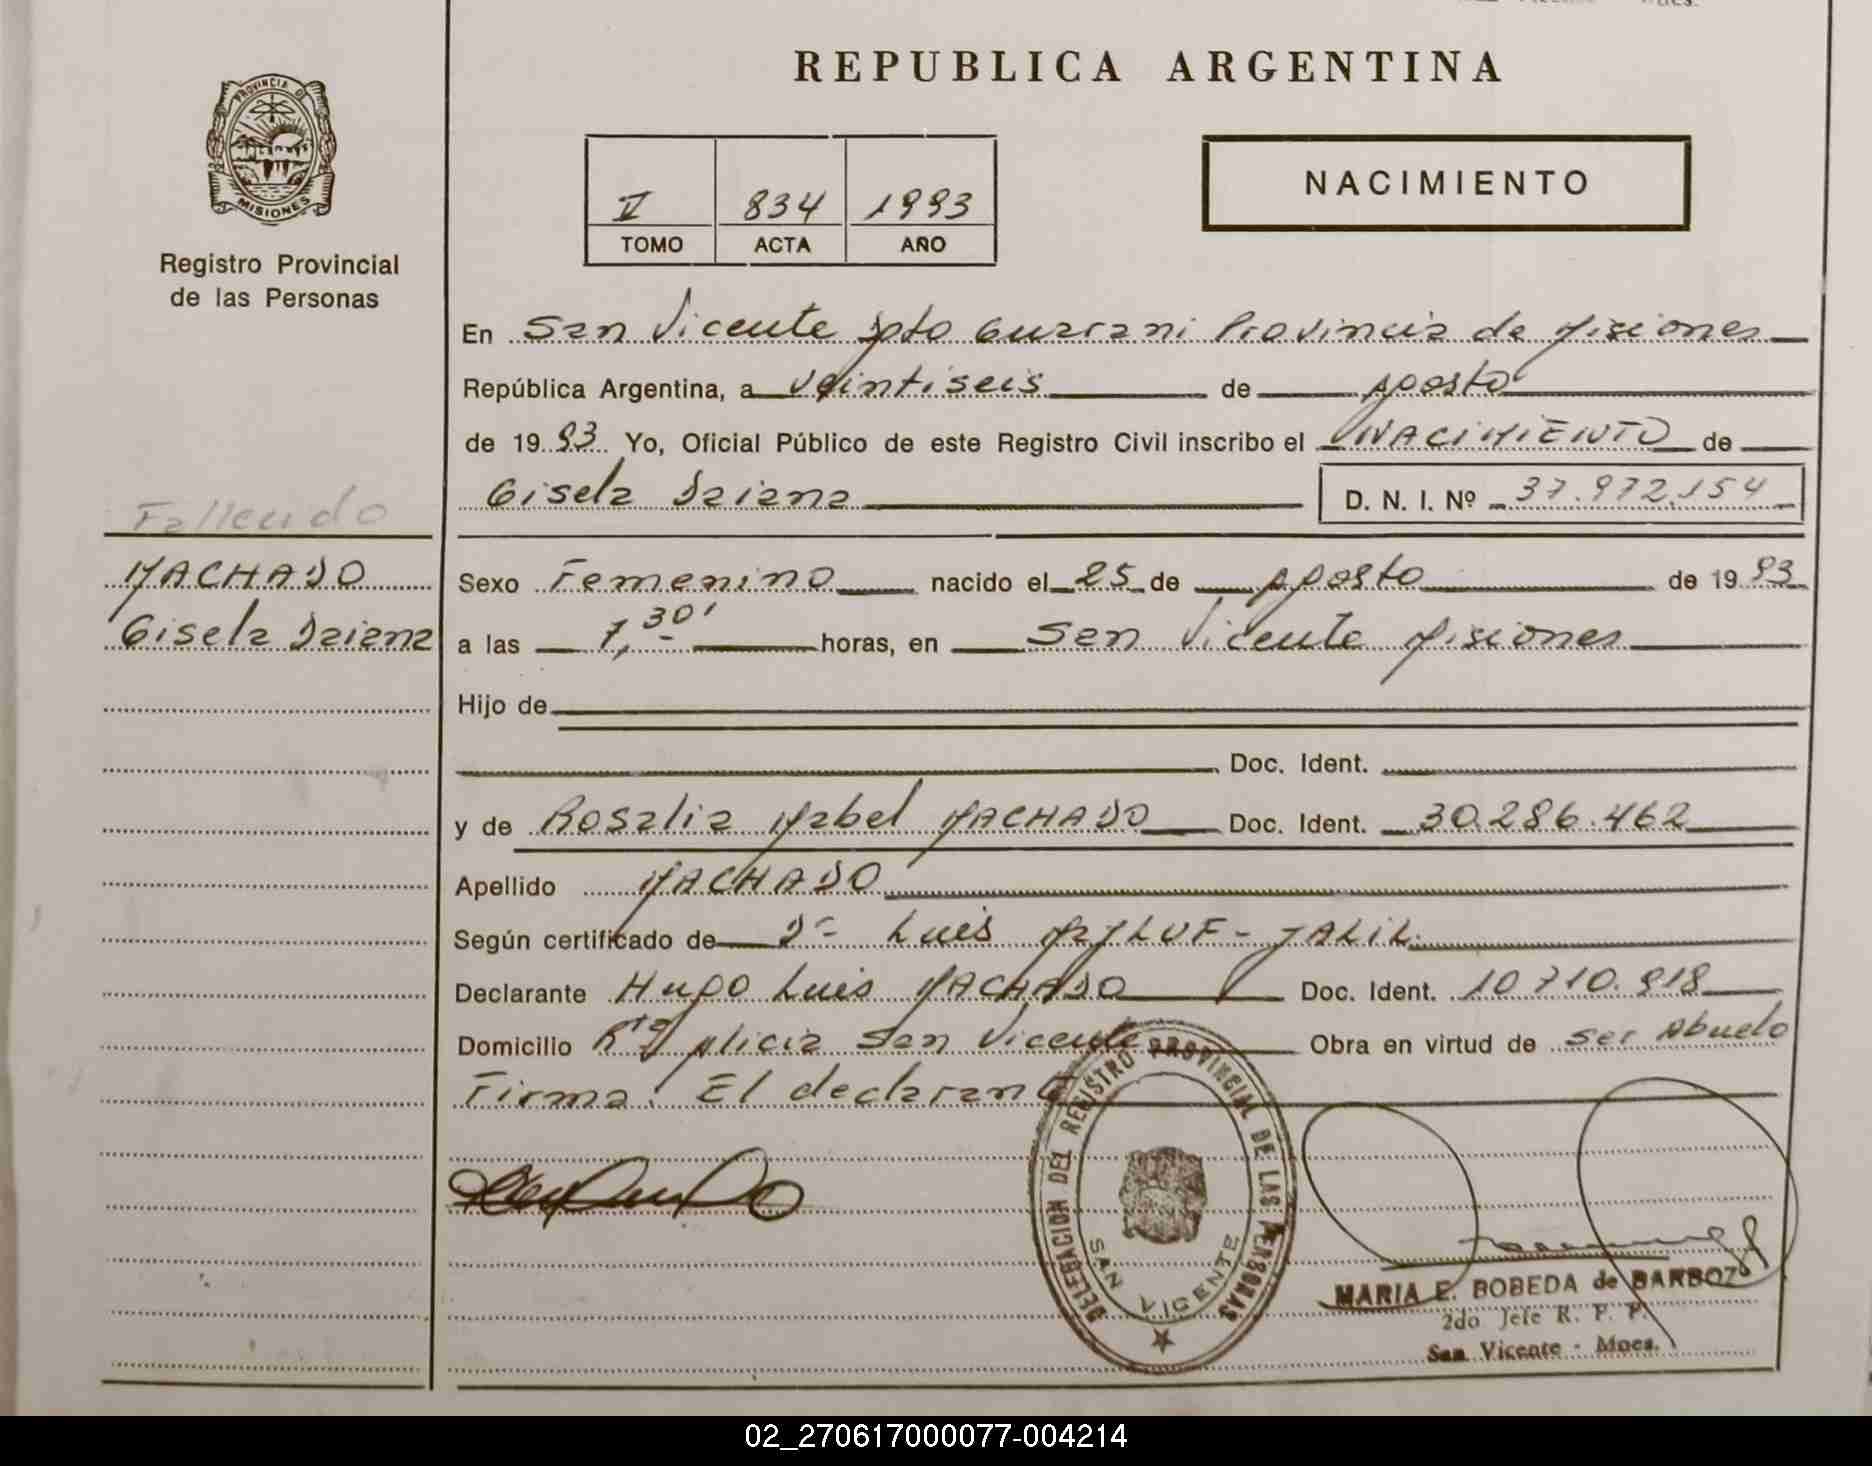 REPUBLICA ARGENTINA
PROVINCIA DE
MISIONES
Registro Provincial
de las Personas
V 834 1993
TOMO ACTA AÑO
NACIMIENTO
En San Vicente Dpto Guarani Provincia de Misiones
República Argentina, a veintiseis de Agosto
de 1993 Yo, Oficial Público de este Registro Civil inscribo el NACIMIENTO de
Gisela Daiana D. N. I. Nº 37.972.154
Fallecido
MACHADO
Gisela Daiana
Sexo Femenino nacido el 25 de Agosto de 1993
a las 7,30' horas, en San Vicente Misiones
Hijo de
Doc. Ident.
y de Rosalia Mabel MACHADO Doc. Ident. 30.286.462
Apellido MACHADO
Según certificado de Dr Luis MAJLUF-JALIL
Declarante Hugo Luis MACHADO Doc. Ident. 10.710.918
Domicilio Alicia San Vicente Obra en virtud de ser Abuelo
Firma: El declarante
DELEGACION DEL REGISTRO PROVINCIAL DE LAS PERSONAS
SAN VICENTE
MARIA E. BOBEDA de BARBOZA
2do Jefe R. P. P.
San Vicente - Mnes.
02_270617000077-004214